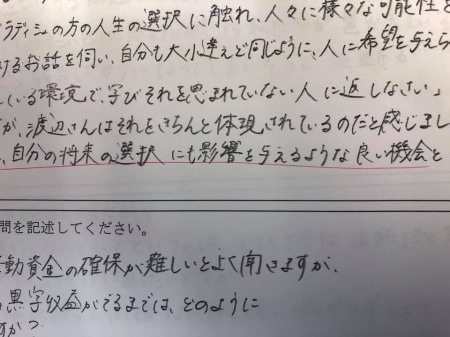 ラディシュの方の人生の選択に触れ、人々に様々な可能性を
けるお話を伺い、自分も大小違えど同じように、人に希望を与えら
いる環境で、学びそれを恵まれていない人に返しなさい」
が、渡辺さんはそれをきちんと体現されているのだと感じまし
、自分の将来の選択にも影響を与えるような良い機会と
問を記述してください。
動資金の確保が難しいとよく聞きますが、
黒字収益がでるまでは、どのように
すか?